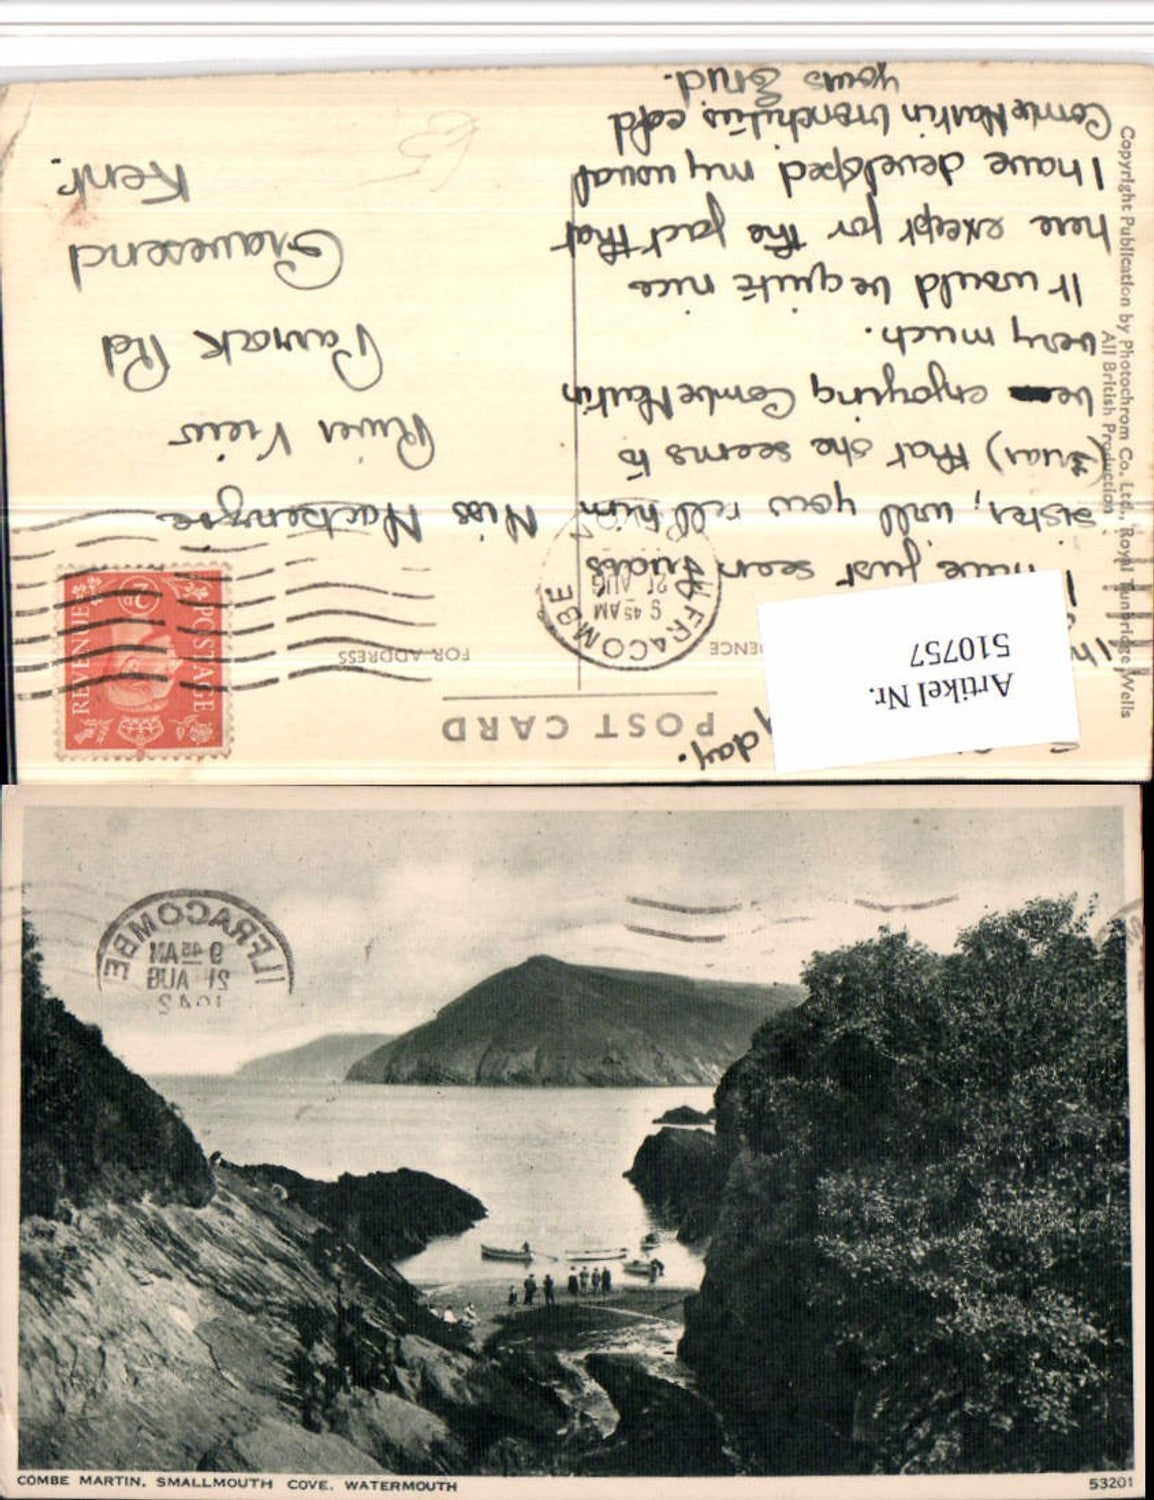 POST CARD
FOR ADDRESS
Artikel Nr.
510757
day.
I have just seen
sister, will you tell him
(Brian) that she seems to
be enjoying Combe Martin
very much.
It would be quite nice
here except for the fact that
I have developed my usual
Combe Martin bronchitis cold
yours Enid.
Miss Mackenzie
River View
Parrock Rd
Gravesend
Kent.
POSTAGE
REVENUE
2D
ILFRACOMBE
9 45 AM
21 AUG
Copyright Publication by Photochrom Co. Ltd., Royal Tunbridge Wells
All British Production
ILFRACOMBE
9 45 AM
21 AUG
COMBE MARTIN, SMALLMOUTH COVE, WATERMOUTH
53201